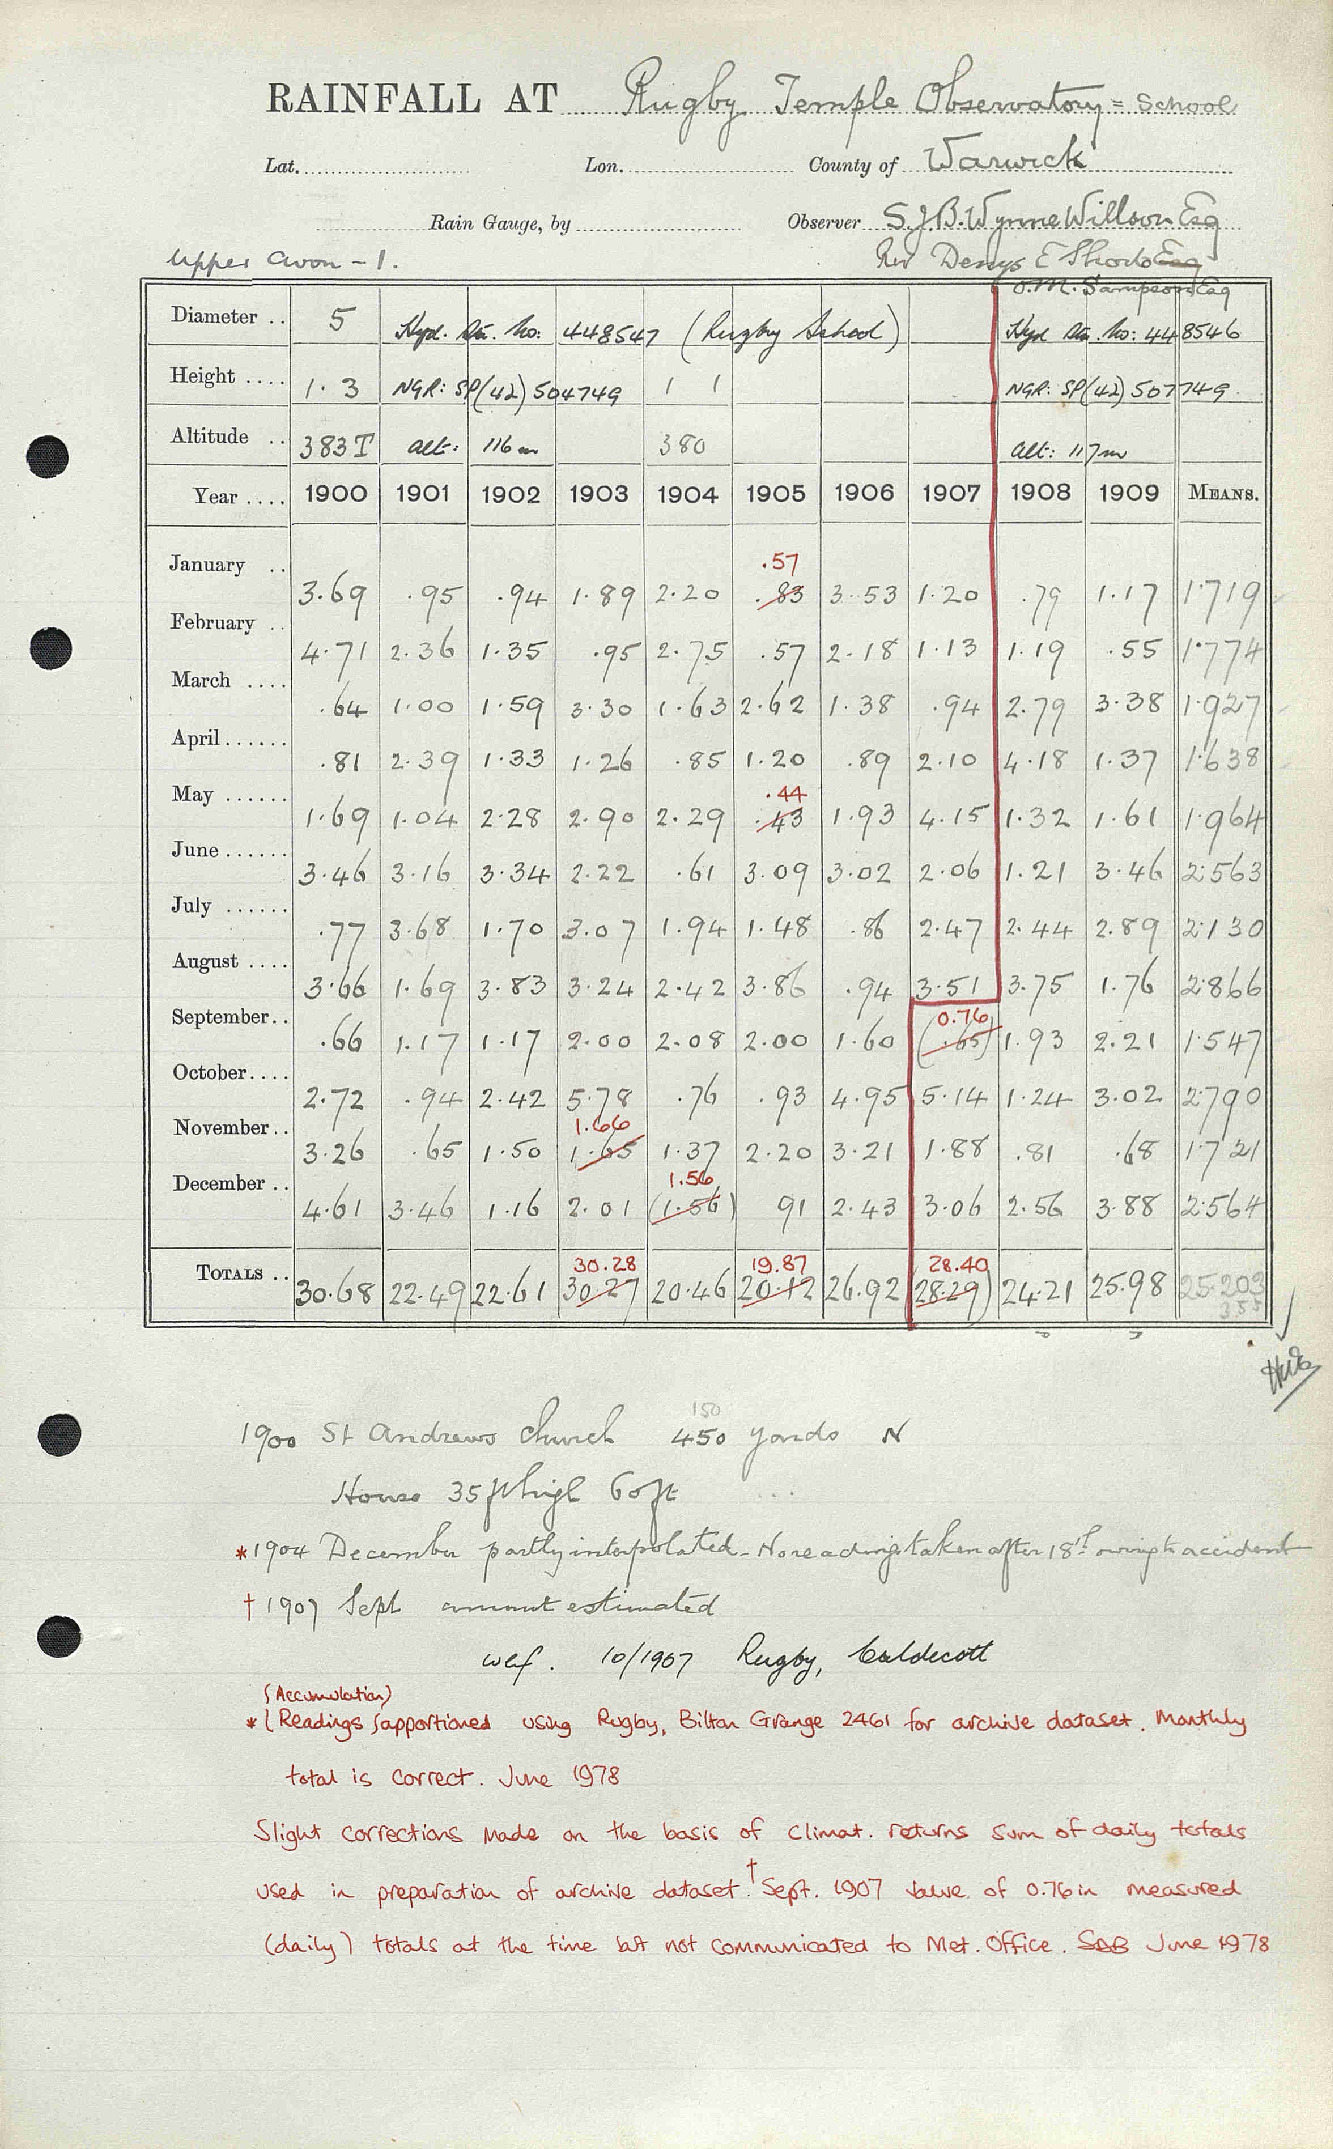 RAINFALL AT Rugby Temple Observatory = School
Lat. Lon. County of Warwick
Rain Gauge, by Observer S.J.B. Wynne Willson Esq
Upper Avon - 1. Rev Denys E Shorto Esq
O.M. Sampson Esq
Diameter .. 5 Hyd. Stn. No: 448547 (Rugby School) Hyd Stn. No: 448546
Height .... 1.3 NGR: SP(42) 504749 1 1 NGR: SP(42) 507749
Altitude .. 383T alt: 116m 380 alt: 117m
Year .... 1900 1901 1902 1903 1904 1905 1906 1907 1908 1909 MEANS.
.57
January .. 3.69 .95 .94 1.89 2.20 .83 3.53 1.20 .79 1.17 1.719
February .. 4.71 2.36 1.35 .95 2.75 .57 2.18 1.13 1.19 .55 1.774
March .... .64 1.00 1.59 3.30 1.63 2.62 1.38 .94 2.79 3.38 1.927
April...... .81 2.39 1.33 1.26 .85 1.20 .89 2.10 4.18 1.37 1.638
.44
May ...... 1.69 1.04 2.28 2.90 2.29 .43 1.93 4.15 1.32 1.61 1.964
June...... 3.46 3.16 3.34 2.22 .61 3.09 3.02 2.06 1.21 3.46 2.563
July ...... .77 3.68 1.70 3.07 1.94 1.48 .86 2.47 2.44 2.89 2.130
August .... 3.66 1.69 3.83 3.24 2.42 3.86 .94 3.51 3.75 1.76 2.866
0.76
September.. .66 1.17 1.17 2.00 2.08 2.00 1.60 (.65) 1.93 2.21 1.547
October.... 2.72 .94 2.42 5.78 .76 .93 4.95 5.14 1.24 3.02 2.790
1.66
November.. 3.26 .65 1.50 1.65 1.37 2.20 3.21 1.88 .81 .68 1.721
1.56
December .. 4.61 3.46 1.16 2.01 (1.56) 91 2.43 3.06 2.56 3.88 2.564
30.28 19.87 28.40
TOTALS .. 30.68 22.49 22.61 30.27 20.46 20.12 26.92 28.29) 24.21 25.98 25.203
355
150
1900 St Andrews Church 450 yards N
House 35 ft high 60 ft
*1904 December partly interpolated - No readings taken after 18th owing to accident
† 1907 Sept amount estimated
wef. 10/1907 Rugby, Caldecott
(Accumulation)
* Readings apportioned using Rugby, Bilton Grange 2461 for archive dataset. Monthly
total is correct. June 1978
Slight corrections made on the basis of Climat. returns sum of daily totals
used in preparation of archive dataset. † Sept. 1907 value of 0.76in measured
(daily) totals at the time but not communicated to Met. Office. SDB June 1978